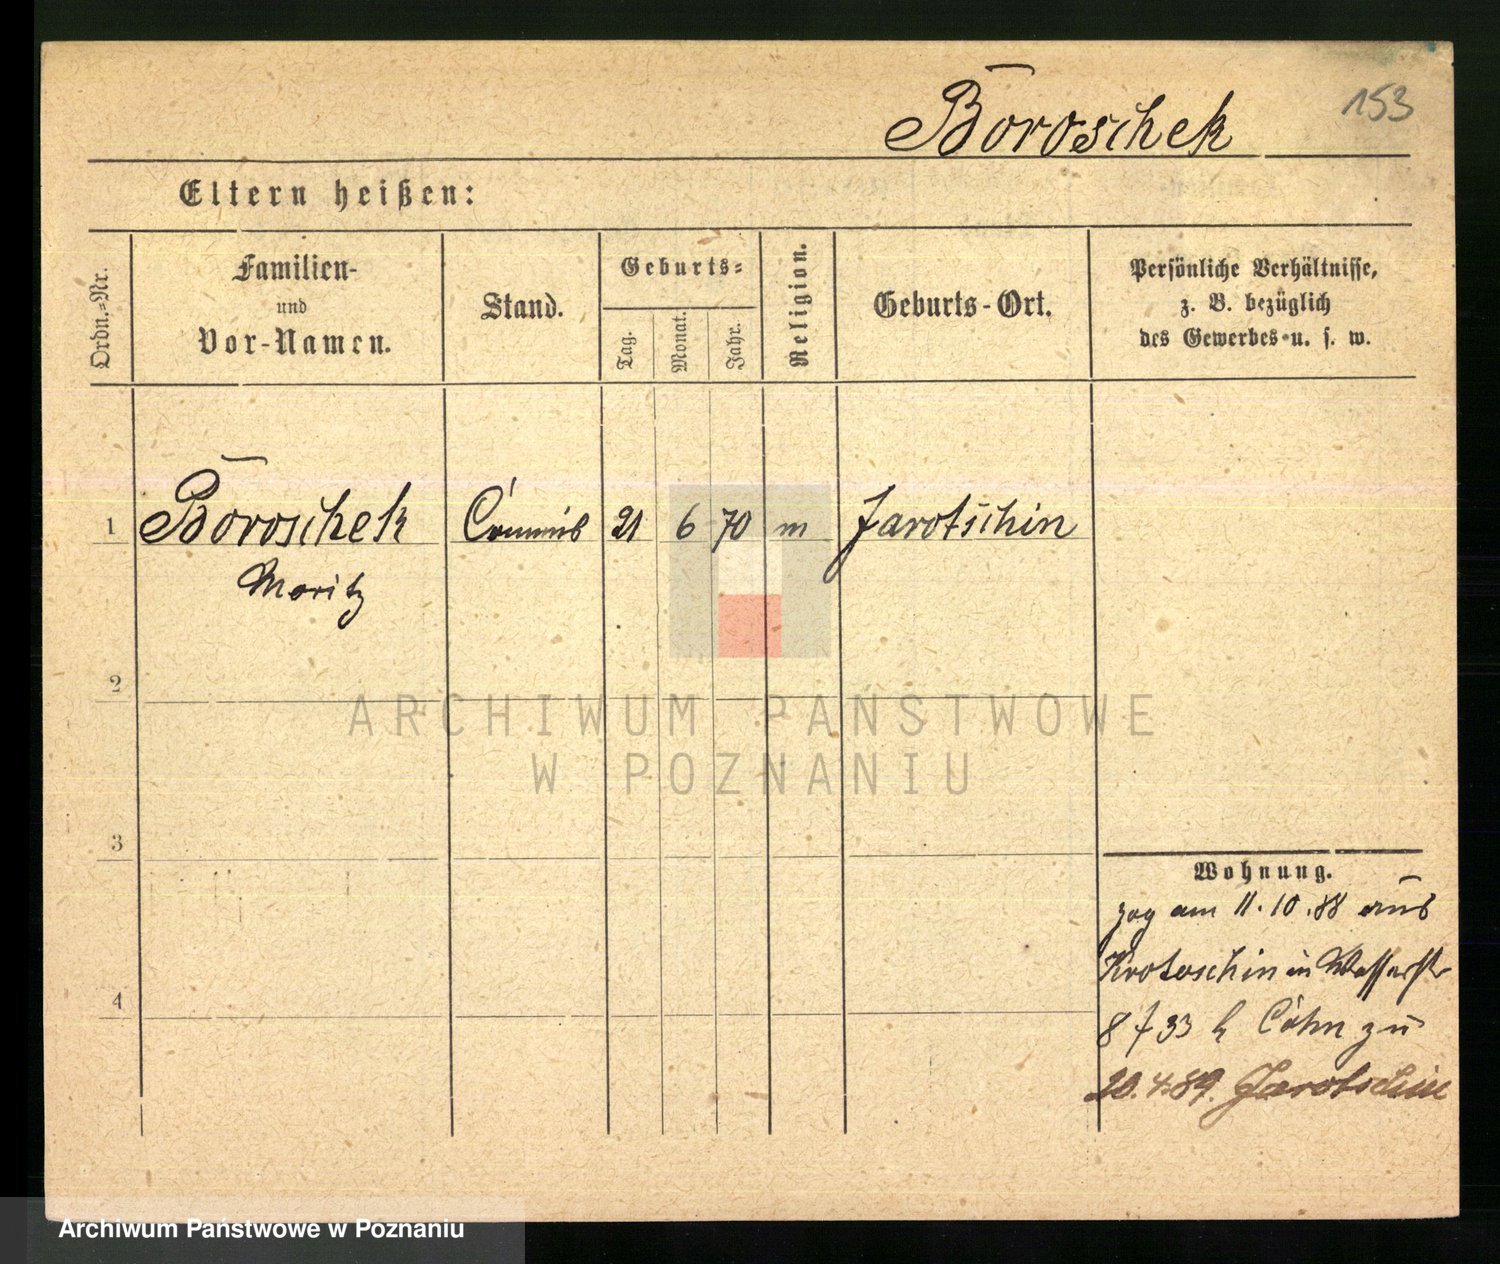 153
Boroschek
Eltern heißen:
Ordn.-Nr.
Familien-
und
Vor-Namen.
Stand.
Geburts-
Tag.
Monat.
Jahr.
Religion.
Geburts-Ort.
Persönliche Verhältnisse,
z. B. bezüglich
des Gewerbes u. s. w.
1 Boroschek Commis 21 6 70 m Jarotschin
Moritz
2
3
4
Wohnung.
zog am 11.10.88 aus
Krotoschin in Wasserstr
8 f 33 b Cohn zu
20.4.89. Jarotschin
ARCHIWUM PAŃSTWOWE
W POZNANIU
Archiwum Państwowe w Poznaniu